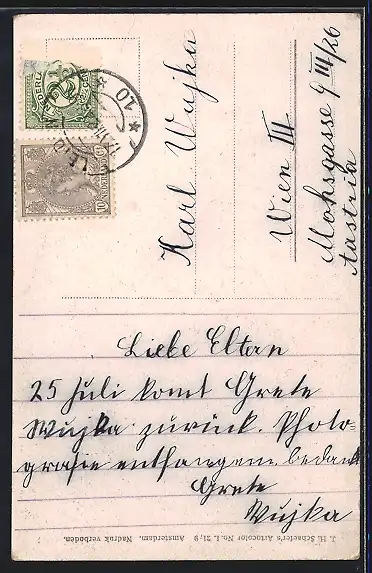 Karl Wujka
Wien III
Mohsgasse 9 III/26
Aastria
Liebe Eltern
25 Juli komt Grete
Wujka zurück. Photo=
grafie entfangen. bedankt
Grete
Wujka
J. H. Schaefer's Artncolor No. I. 21, 9 Amsterdam. Nadruk verboden.